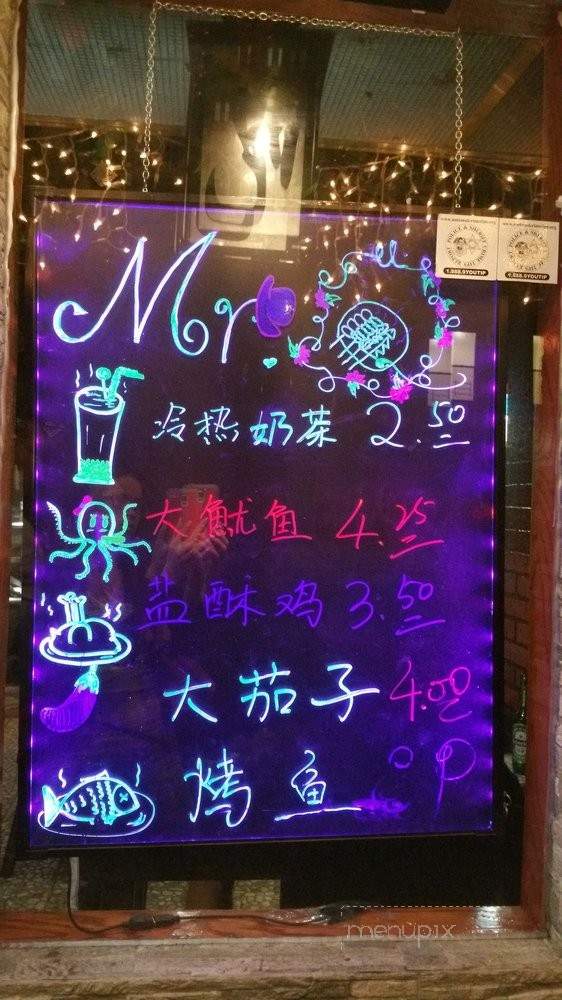 Mr.
冷热奶茶 2.50
大鱿鱼 4.25
盐酥鸡 3.50
大茄子 4.00
烤鱼
1.888.9YOUTIP
1.888.9YOUTIP
menupix